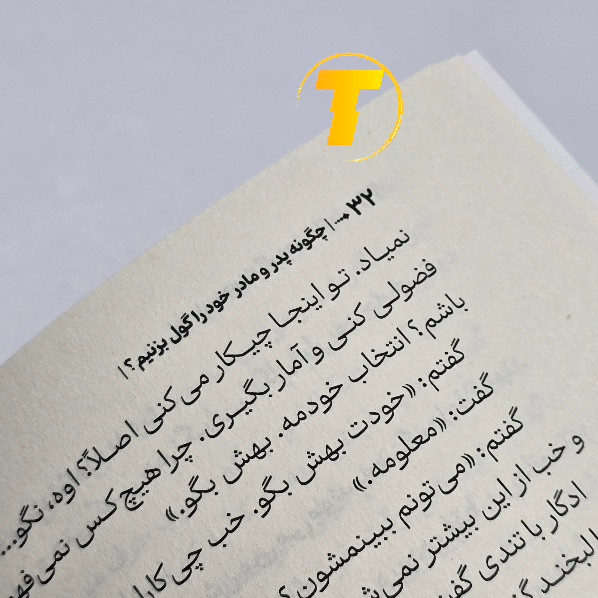 T
۳۲ ... | چگونه پدر و مادر خود را گول بزنیم؟ |
نمیاد. تو اینجا چیکار می‌کنی اصلاً؟ اوه، نگو...
فضولی کنی و آمار بگیری. چرا هیچ‌کس نمی‌فه
باشم؟ انتخاب خودمه. بهش بگو.»
گفتم: «خودت بهش بگو. خب چی‌کارا
گفت: «معلومه.»
گفتم: «می‌تونم ببینمشون؟
و خب از این بیشتر نمی‌ش
ادگار با تندی گفت
لبخند